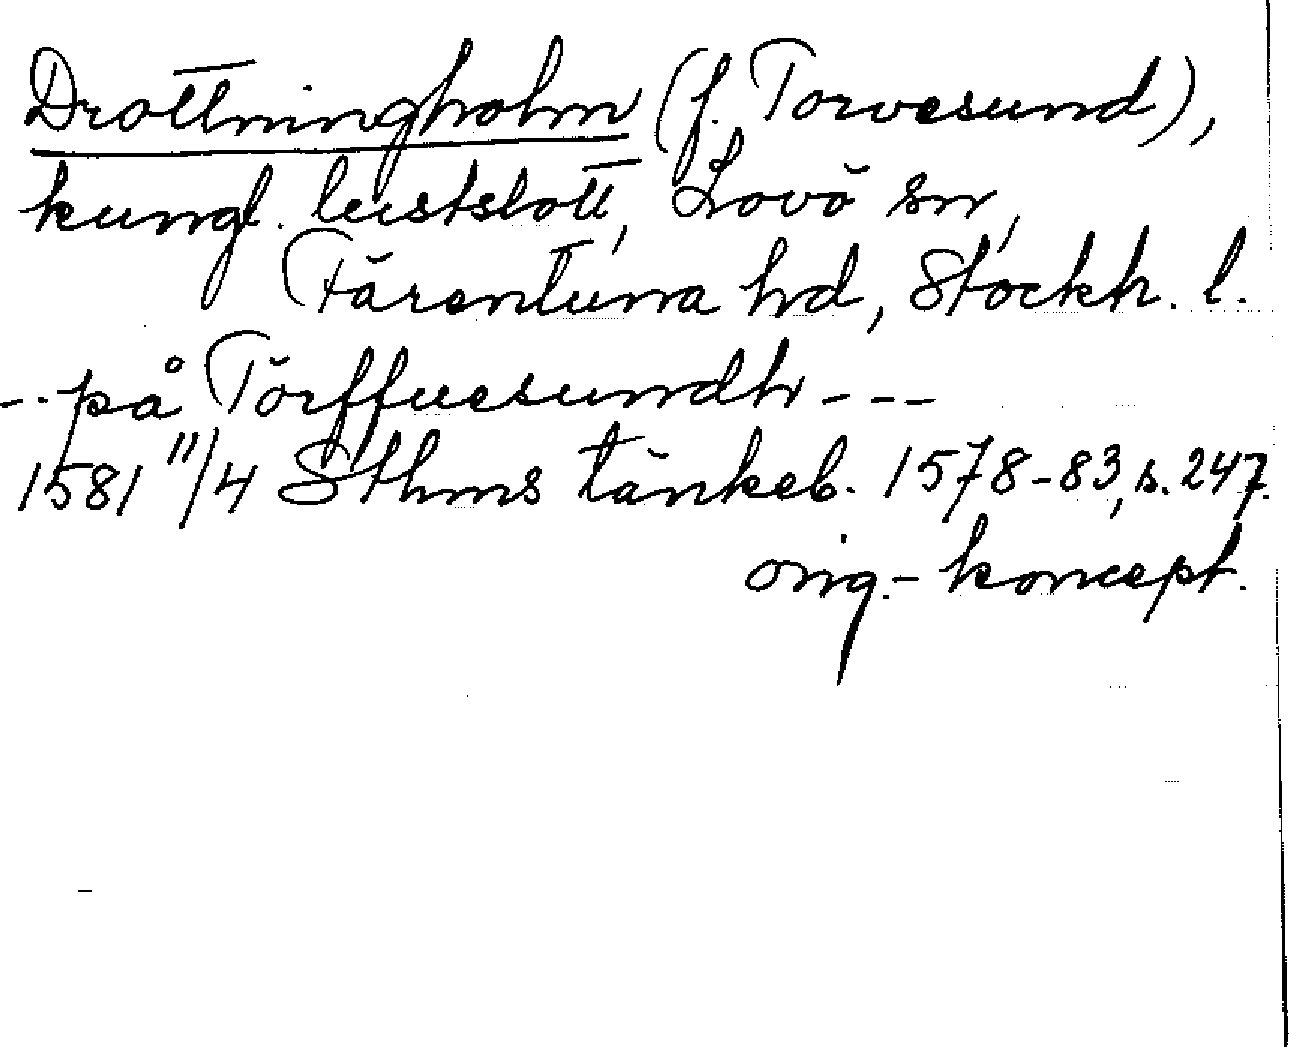 Drottningholm (f. Torvesund),
kungl. lustslott, Lovö sn,
Färentuna hd, Stockh. l.
-- på Törffuesundh ---
1581 11/4 Sthms tänkeb. 1578-83, s. 247.
orig.- koncept.